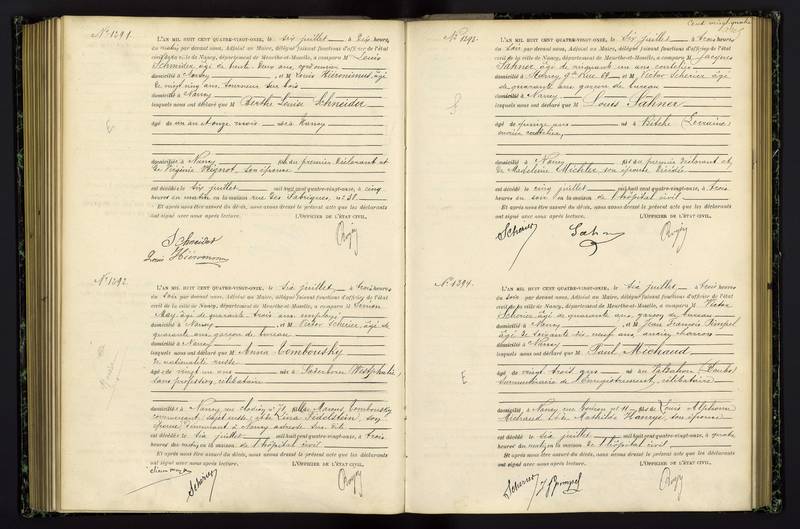 N° 1291.
L'AN MIL HUIT CENT QUATRE-VINGT-ONZE, le six juillet à dix heures
du matin par devant nous, Adjoint au Maire, délégué faisant fonctions d'officier de l'état
civil de la ville de Nancy, département de Meurthe-et-Moselle, a comparu M Louis
Schneider âgé de trente deux ans,
domicilié à Nancy, et M Louis Hiéronimus âgé
de vingt cinq ans, tourneur sur bois
domicilié à Nancy
lesquels nous ont déclaré que M Berthe Louise Schneider
âgé de un an onze mois née à Nancy
domiciliée à Nancy fille du premier déclarant et
de Virginie Mignot, son épouse
est décédée le six juillet mil huit cent quatre-vingt-onze, à cinq
heures du matin en la maison rue des Fabriques, n° 31.
Et après nous être assuré du décès, nous avons dressé le présent acte que les déclarants
ont signé avec nous après lecture. L'OFFICIER DE L'ÉTAT CIVIL,
Schneider
Louis Hiéronimus
N° 1292.
L'AN MIL HUIT CENT QUATRE-VINGT-ONZE, le six juillet, à trois heures
du soir par devant nous, Adjoint au Maire, délégué faisant fonctions d'officier de l'état
civil de la ville de Nancy, département de Meurthe-et-Moselle, a comparu M Simon
May, âgé de quarante trois ans employé
domicilié à Nancy, et M Victor Scherier, âgé de
quarante ans garçon de bureau
domicilié à Nancy
lesquels nous ont déclaré que M Anna Comboushy
de nationalité russe
âgée de vingt un ans née à Paderborn Westphalie,
sans profession, célibataire
domiciliée à Nancy, fille Marcus Comboushy
commerçant sujet russe, et de Lina Fidelstein, son
épouse
est décédée le six juillet mil huit cent quatre-vingt-onze, à trois
heures du matin en la maison de l'hôpital civil
Et après nous être assuré du décès, nous avons dressé le présent acte que les déclarants
ont signé avec nous après lecture. L'OFFICIER DE L'ÉTAT CIVIL,
Simon May
Scherier
Cent vingt quatre
N° 1293.
L'AN MIL HUIT CENT QUATRE-VINGT-ONZE, le six juillet à trois heures
du soir par devant nous, Adjoint au Maire, délégué faisant fonctions d'officier de l'état
civil de la ville de Nancy, département de Meurthe-et-Moselle, a comparu M Jacques
Sahner âgé de cinquante un ans coutelier
domicilié à Nancy, et M Victor Scherier âgé
de quarante ans garçon de bureau
domicilié à Nancy
lesquels nous ont déclaré que M Louis Sahner
âgé de quinze ans né à Bitche (Lorraine)
domicilié à Nancy fils du premier déclarant et
de Madeleine Michler, son épouse décédée
est décédé le cinq juillet mil huit cent quatre-vingt-onze, à trois
heures du soir en la maison de l'hôpital civil
Et après nous être assuré du décès, nous avons dressé le présent acte que les déclarants
ont signé avec nous après lecture. L'OFFICIER DE L'ÉTAT CIVIL,
Scherier Sahner
N° 1294.
L'AN MIL HUIT CENT QUATRE-VINGT-ONZE, le six juillet, à trois heures
du soir par devant nous, Adjoint au Maire, délégué faisant fonctions d'officier de l'état
civil de la ville de Nancy, département de Meurthe-et-Moselle, a comparu M Victor
Scherier âgé de quarante ans, garçon de bureau
domicilié à Nancy, et M Jean François Pompel
âgé de soixante dix neuf ans, ancien charron
domicilié à Nancy
lesquels nous ont déclaré que M Paul Michaud
E
âgé de vingt trois ans né au Valdahon (Doubs)
surnuméraire de l'enregistrement, célibataire
domicilié à Nancy, fils de Louis Alphonse
Michaud et de Mathilde, son épouse
est décédé le six juillet mil huit cent quatre-vingt-onze, à quatre
heures du matin en la maison de l'hôpital civil
Et après nous être assuré du décès, nous avons dressé le présent acte que les déclarants
ont signé avec nous après lecture. L'OFFICIER DE L'ÉTAT CIVIL,
Scherier J f pompel